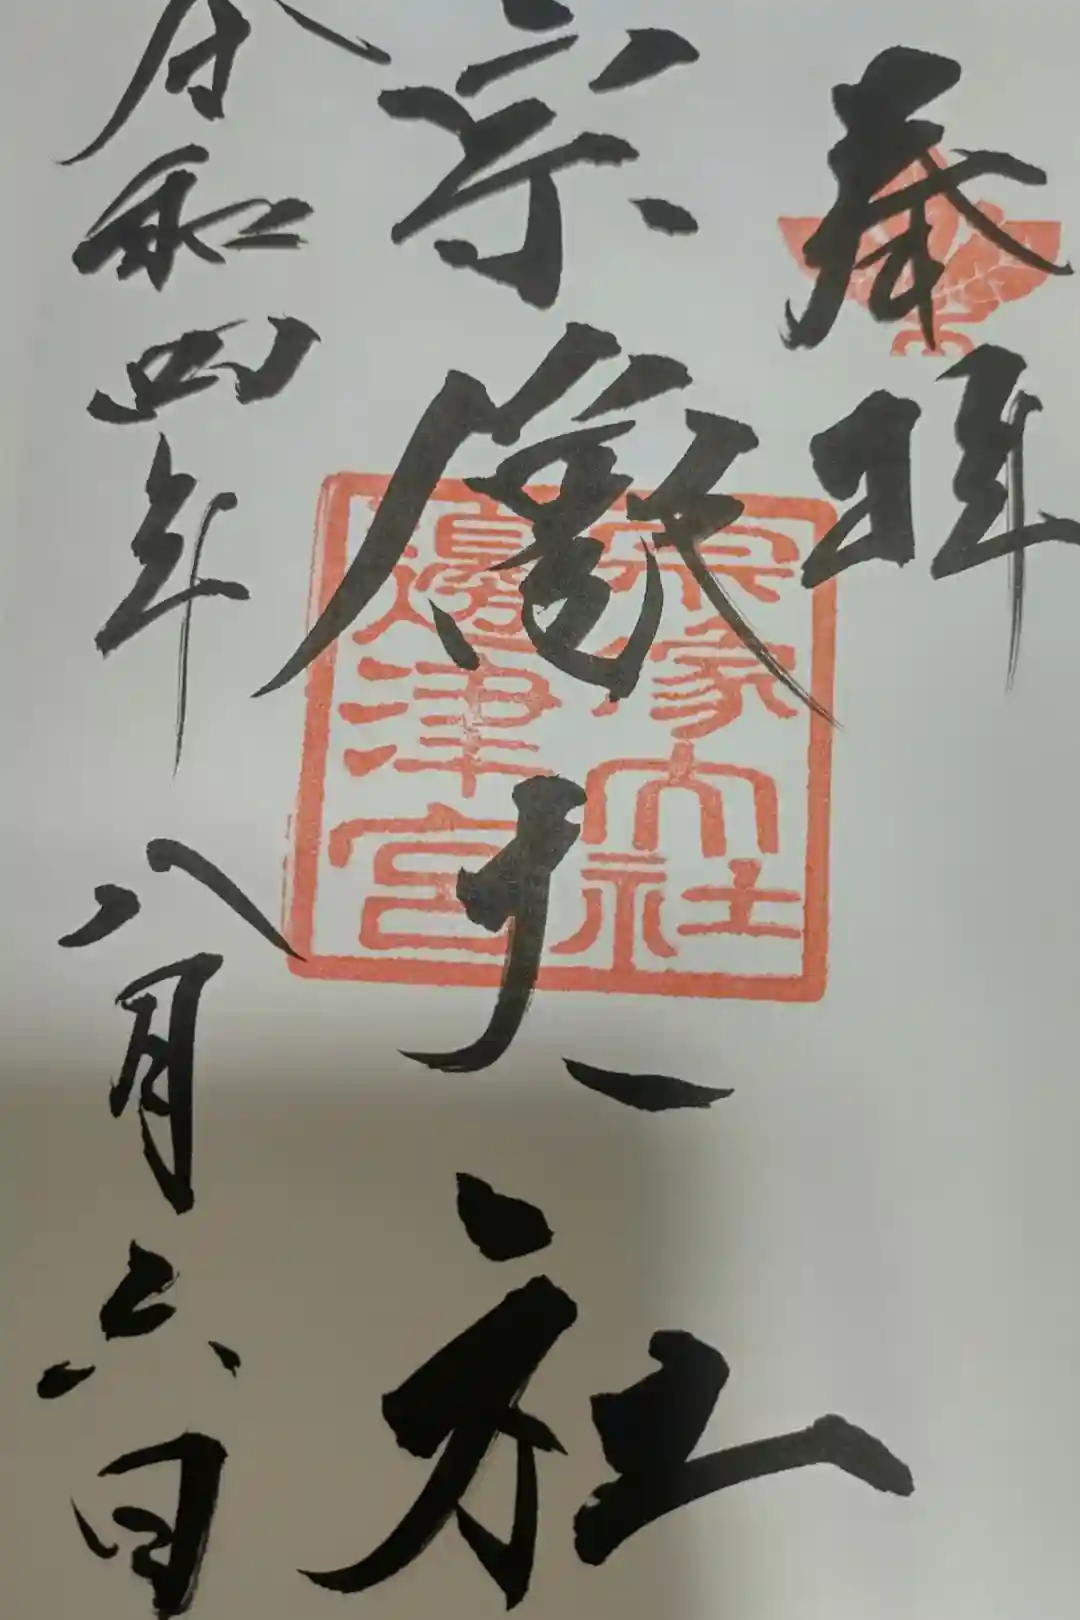 奉拝
宗像大社
令和四年八月六日
宗像大社
邊津宮